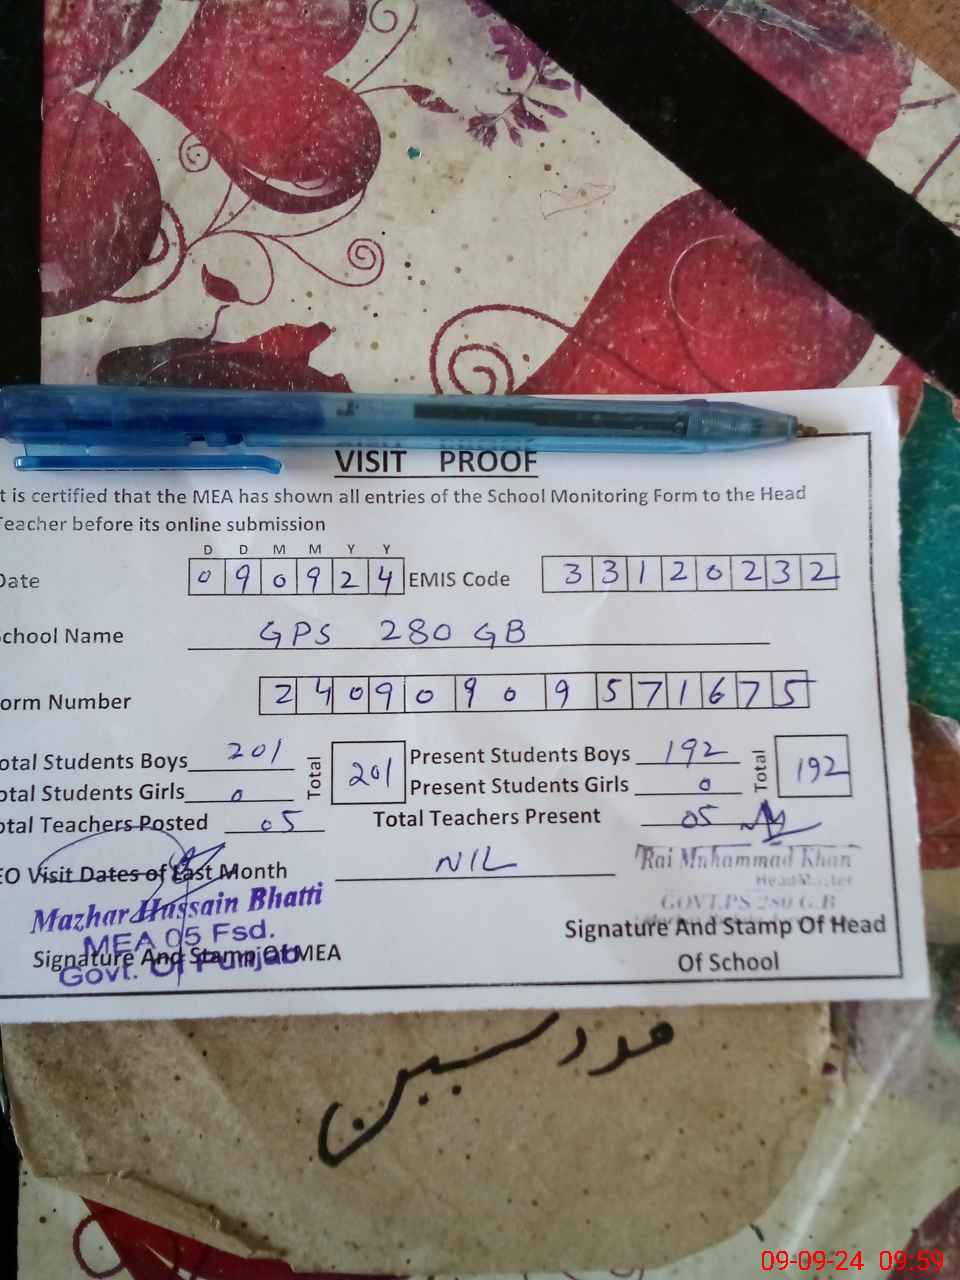 VISIT PROOF
t is certified that the MEA has shown all entries of the School Monitoring Form to the Head
Teacher before its online submission
D D M M Y Y
Date 0 9 0 9 2 4 EMIS Code 3 3 1 2 0 2 3 2
School Name GPS 280 GB
orm Number 2 4 0 9 0 9 0 9 5 7 1 6 7 5
otal Students Boys 201 Total 201 Present Students Boys 192 Total 192
otal Students Girls 0 Present Students Girls 0
otal Teachers Posted 05 Total Teachers Present 05
EO Visit Dates of Last Month NIL
Rai Muhammad Khan
HeadMaster
GOVT.PS 280 G.B
Mazhar Hussain Bhatti
MEA 05 Fsd.
Govt. Of Punjab
Signature And Stamp Of MEA
Signature And Stamp Of Head
Of School
09-09-24 09:59